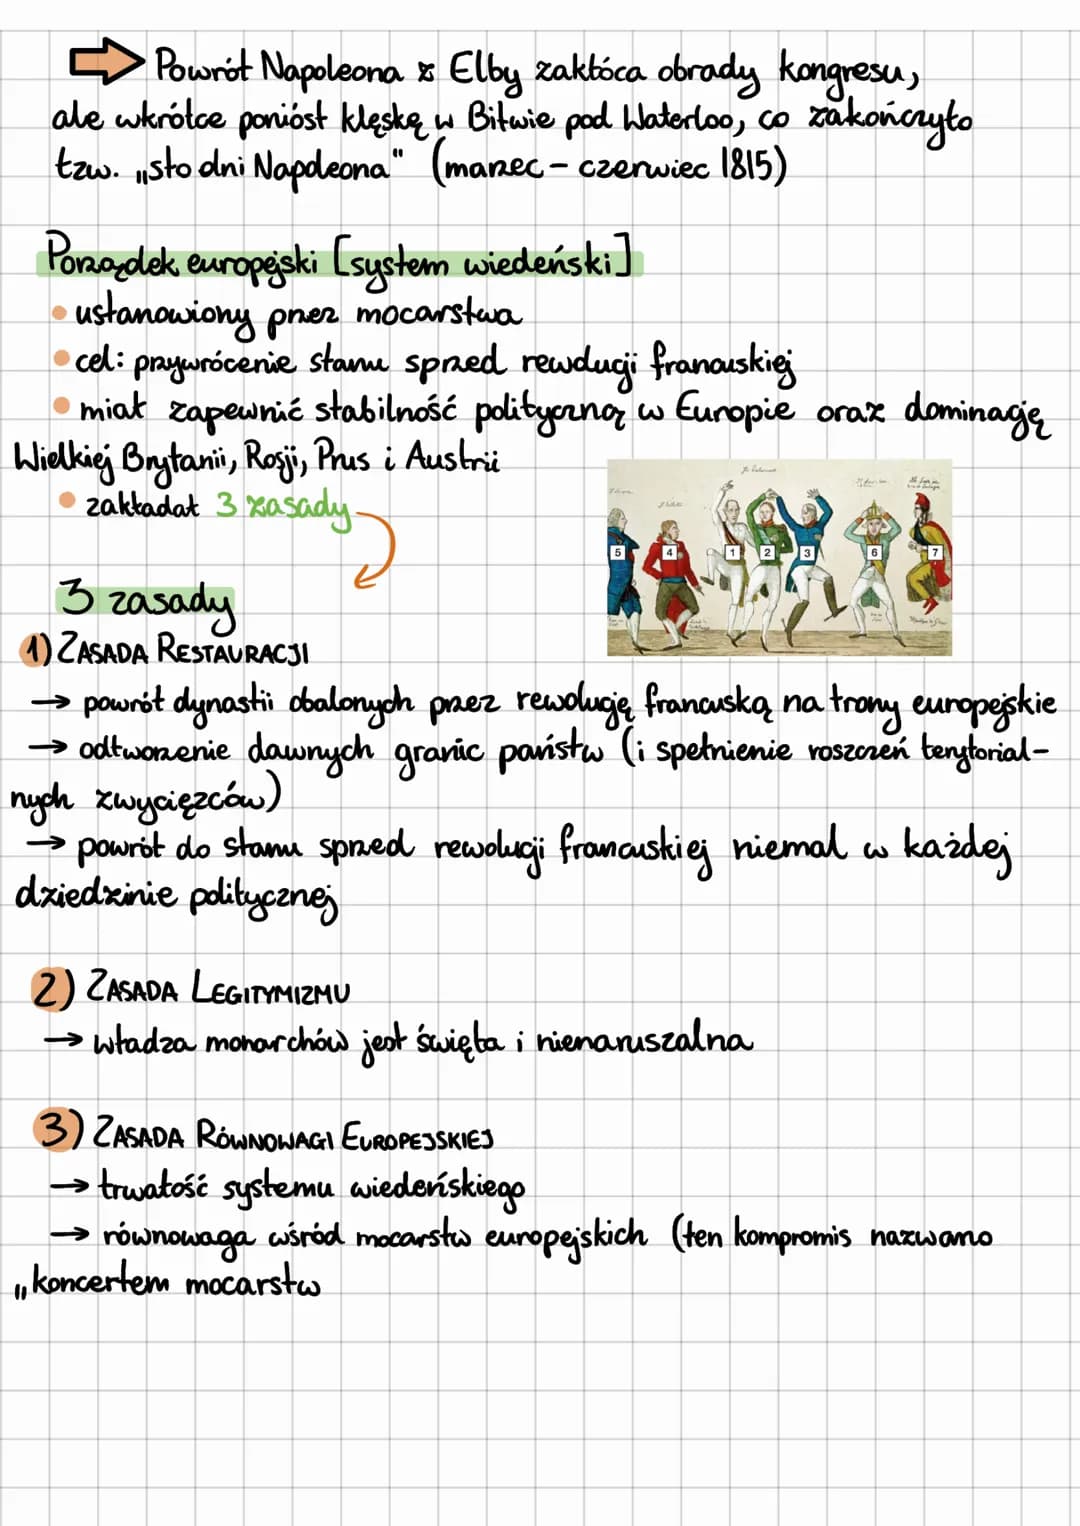 Powrót Napoleona z Elby zakłóca obrady kongresu,
ale wkrótce poniósł klęskę w Bitwie pod Waterloo, co zakończyło
tzw. „sto dni Napoleona" (marzec – czerwiec 1815)
Porządek europejski [system wiedeński]
• ustanowiony przez mocarstwa
• cel: przywrócenie stanu sprzed rewolucji francuskiej
• miał zapewnić stabilność polityczną w Europie oraz dominację
Wielkiej Brytanii, Rosji, Prus i Austrii
• zakładał 3 zasady
5 4 1 2 3 6 7
3 zasady
1) ZASADA RESTAURACJI
→ powrót dynastii obalonych przez rewolucję francuską na trony europejskie
→ odtworzenie dawnych granic państw (i spełnienie roszczeń terytorial-
nych zwycięzców)
→ powrót do stanu sprzed rewolucji francuskiej niemal w każdej
dziedzinie politycznej
2) ZASADA LEGITYMIZMU
→ władza monarchów jest święta i nienaruszalna
3) ZASADA RÓWNOWAGI EUROPEJSKIEJ
→ trwałość systemu wiedeńskiego
→ równowaga wśród mocarstw europejskich (ten kompromis nazwano
„koncertem mocarstw